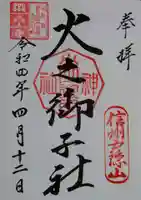 奉拝
信州戸隠山
火之御子社
令和四年四月十二日